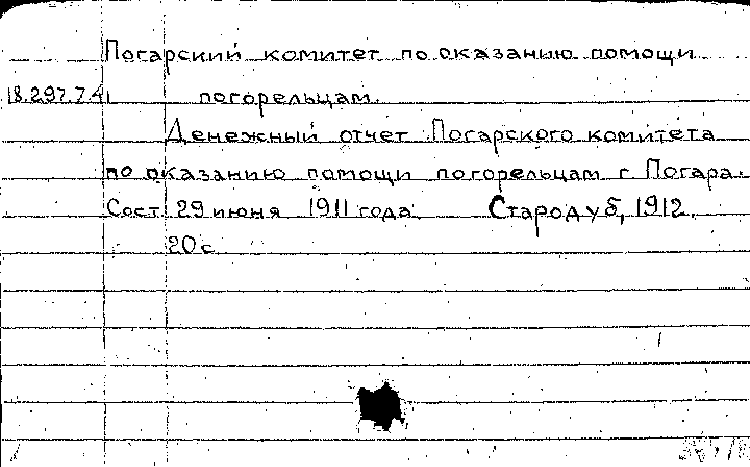 Погарский комитет по оказанию помощи
18.297.7.4 погорельцам.
Денежный отчет Погарского комитета
по оказанию помощи погорельцам г. Погара.
Сост. 29 июня 1911 года. Стародуб, 1912.
20 с.